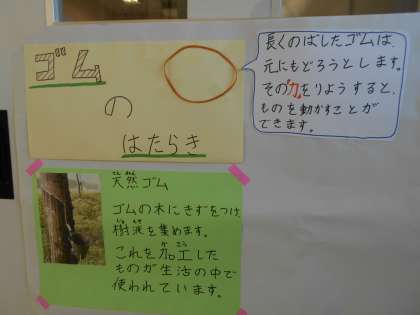 ゴム
の
はたらき
長くのばしたゴムは、
元にもどろうとします。
その力をりようすると、
ものを動かすことが
できます。
天然ゴム
ゴムの木にきずをつけ、
樹液を集めます。
これを加工した
ものが生活の中で
使われています。